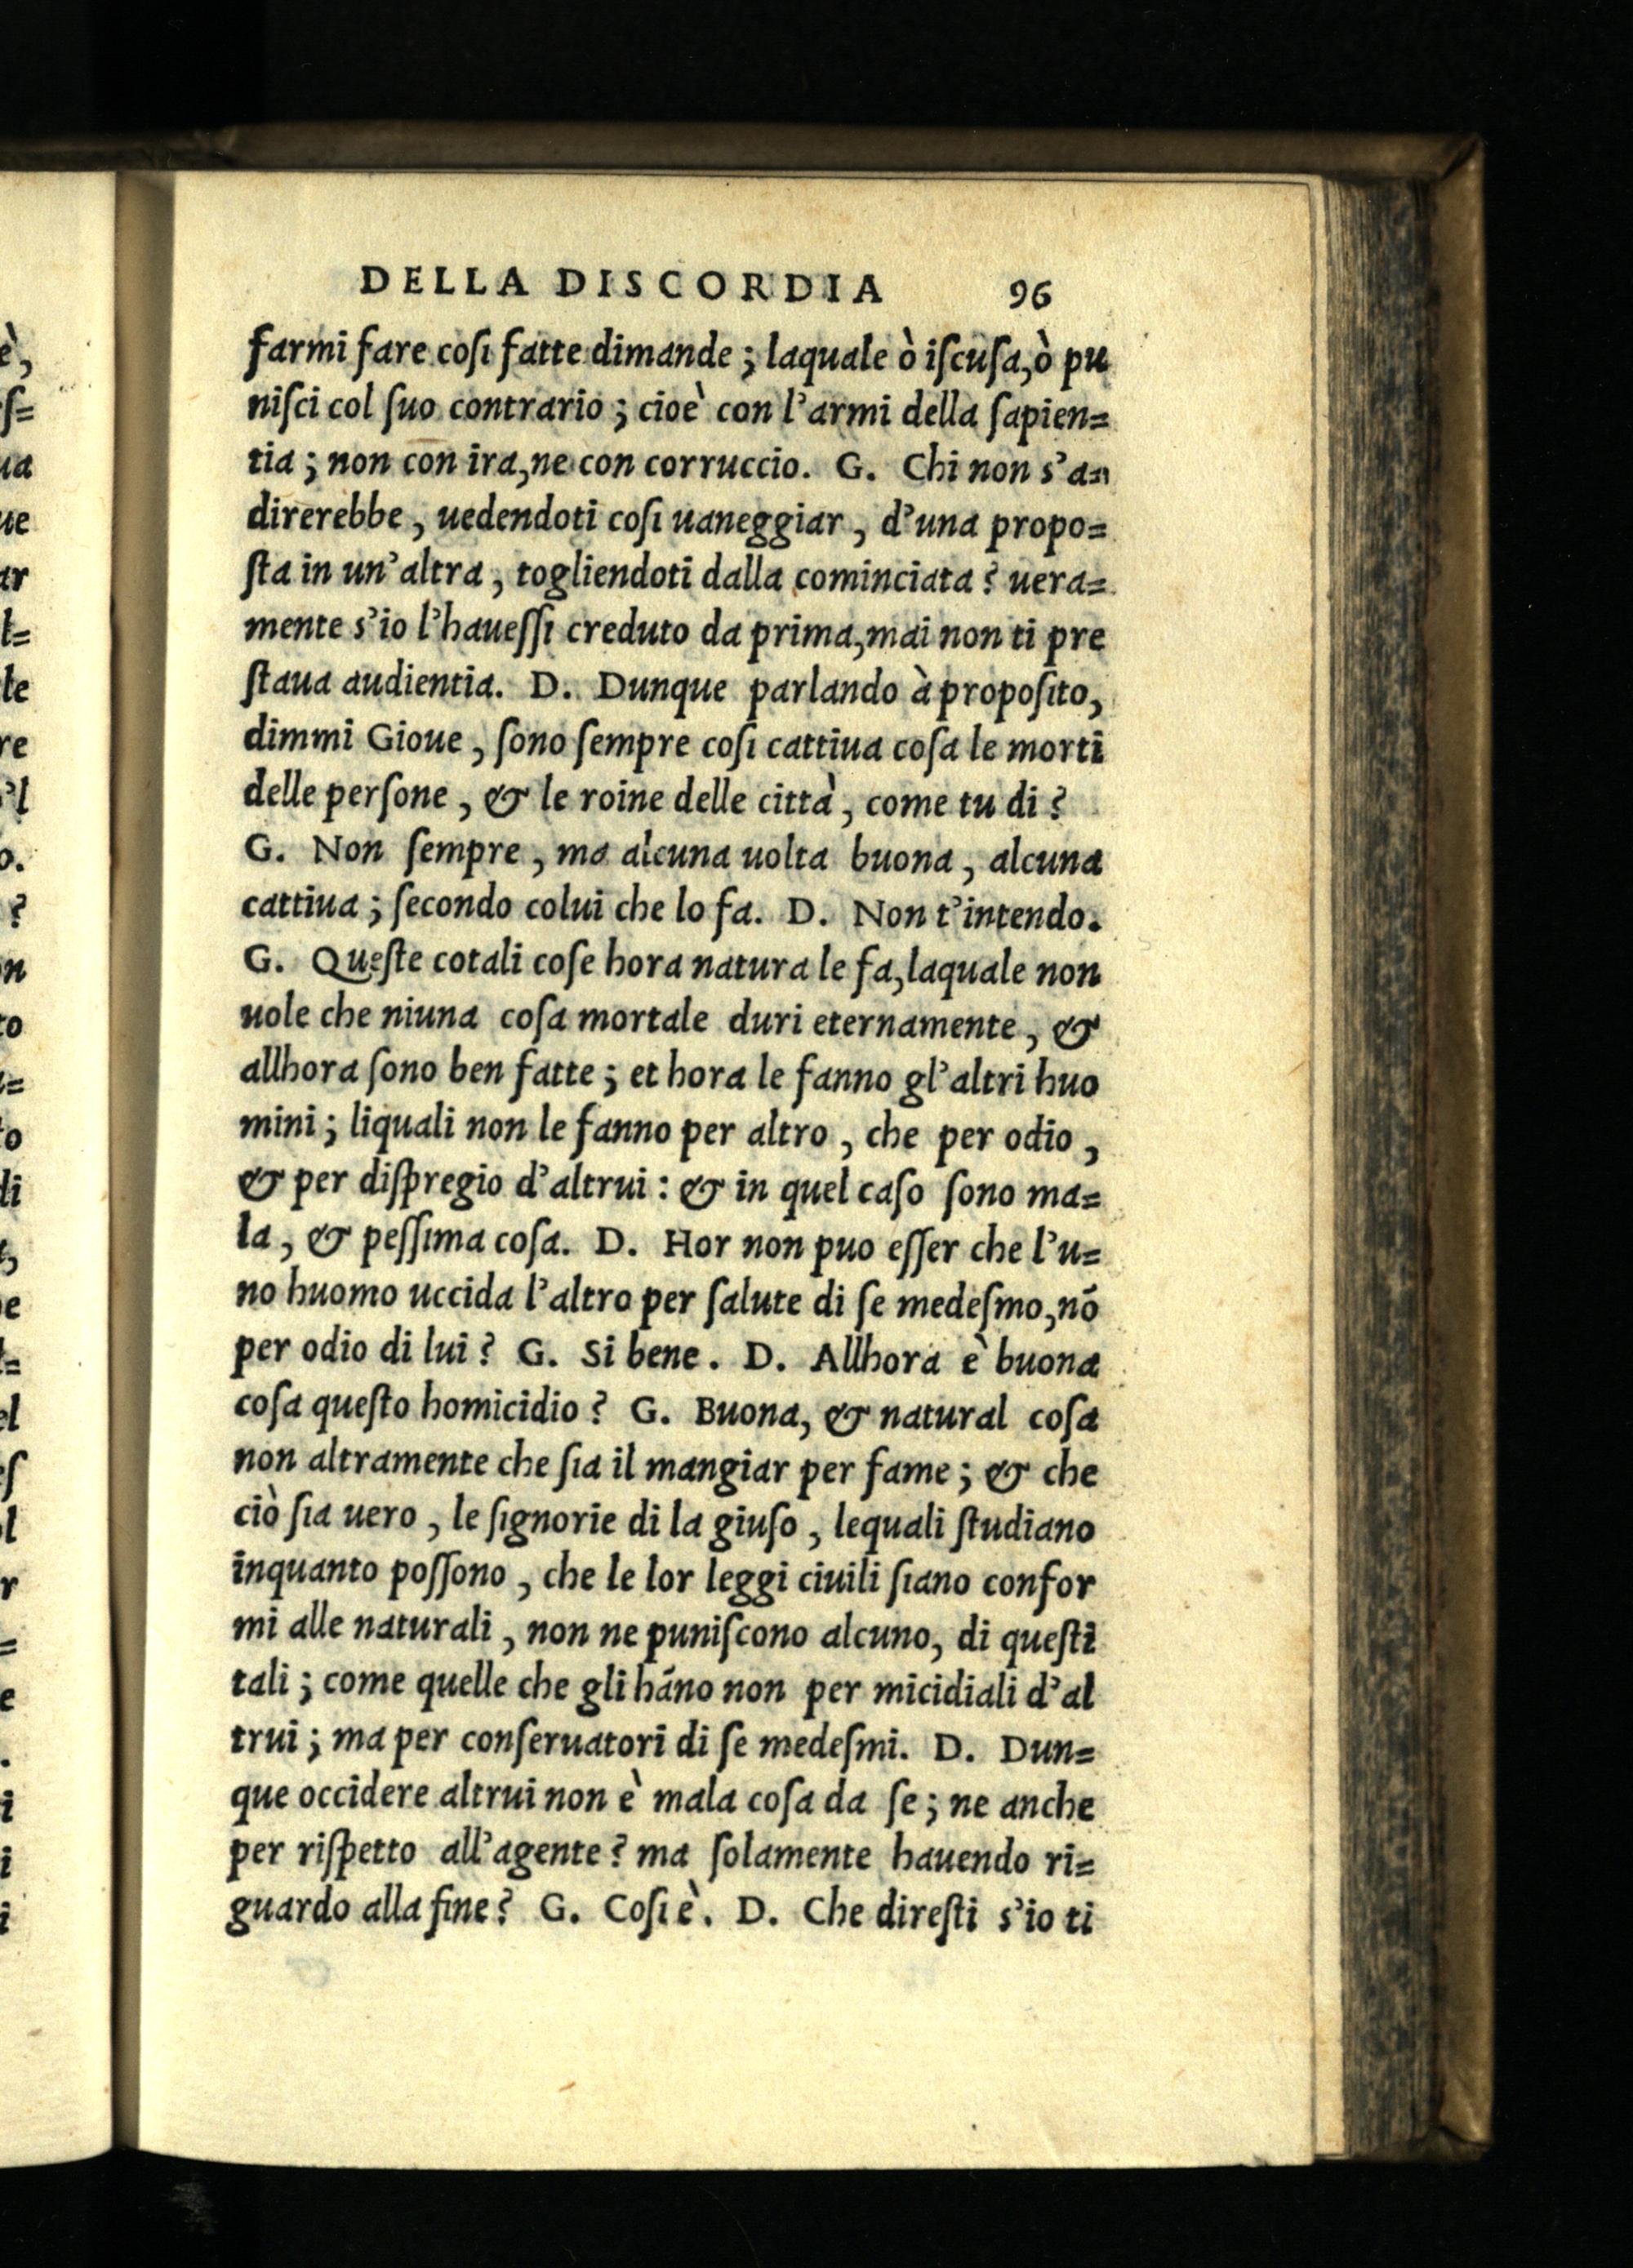 DELLA DISCORDIA 96
farmi fare coſi fatte dimande; laquale ò iſcuſa, ò pu
niſci col ſuo contrario; cioè con l'armi della ſapien=
tia; non con ira, ne con corruccio. G. Chi non s'a=
direrebbe, uedendoti coſi uaneggiar, d'una propo=
ſta in un'altra, togliendoti dalla cominciata? uera=
mente s'io l'haueſſi creduto da prima, mai non ti pre
ſtaua audientia. D. Dunque parlando à propoſito,
dimmi Gioue, ſono ſempre coſi cattiua coſa le morti
delle perſone, & le roine delle città, come tu di?
G. Non ſempre, ma alcuna uolta buona, alcuna
cattiua; ſecondo colui che lo fa. D. Non t'intendo.
G. Queſte cotali coſe hora natura le fa, laquale non
uole che niuna coſa mortale duri eternamente, &
allhora ſono ben fatte; et hora le fanno gl'altri huo
mini; liquali non le fanno per altro, che per odio,
& per diſpregio d'altrui: & in quel caſo ſono ma=
la, & peſſima coſa. D. Hor non puo eſſer che l'u=
no huomo uccida l'altro per ſalute di ſe medeſmo, nõ
per odio di lui? G. Si bene. D. Allhora è buona
coſa queſto homicidio? G. Buona, & natural coſa
non altramente che ſia il mangiar per fame; & che
ciò ſia uero, le ſignorie di la giuſo, lequali ſtudiano
inquanto poſſono, che le lor leggi ciuili ſiano confor
mi alle naturali, non ne puniſcono alcuno, di queſti
tali; come quelle che gli hãno non per micidiali d'al
trui; ma per conſeruatori di ſe medeſmi. D. Dun=
que occidere altrui non è mala coſa da ſe; ne anche
per riſpetto all'agente? ma ſolamente hauendo ri=
guardo alla fine? G. Coſi è. D. Che direſti s'io ti